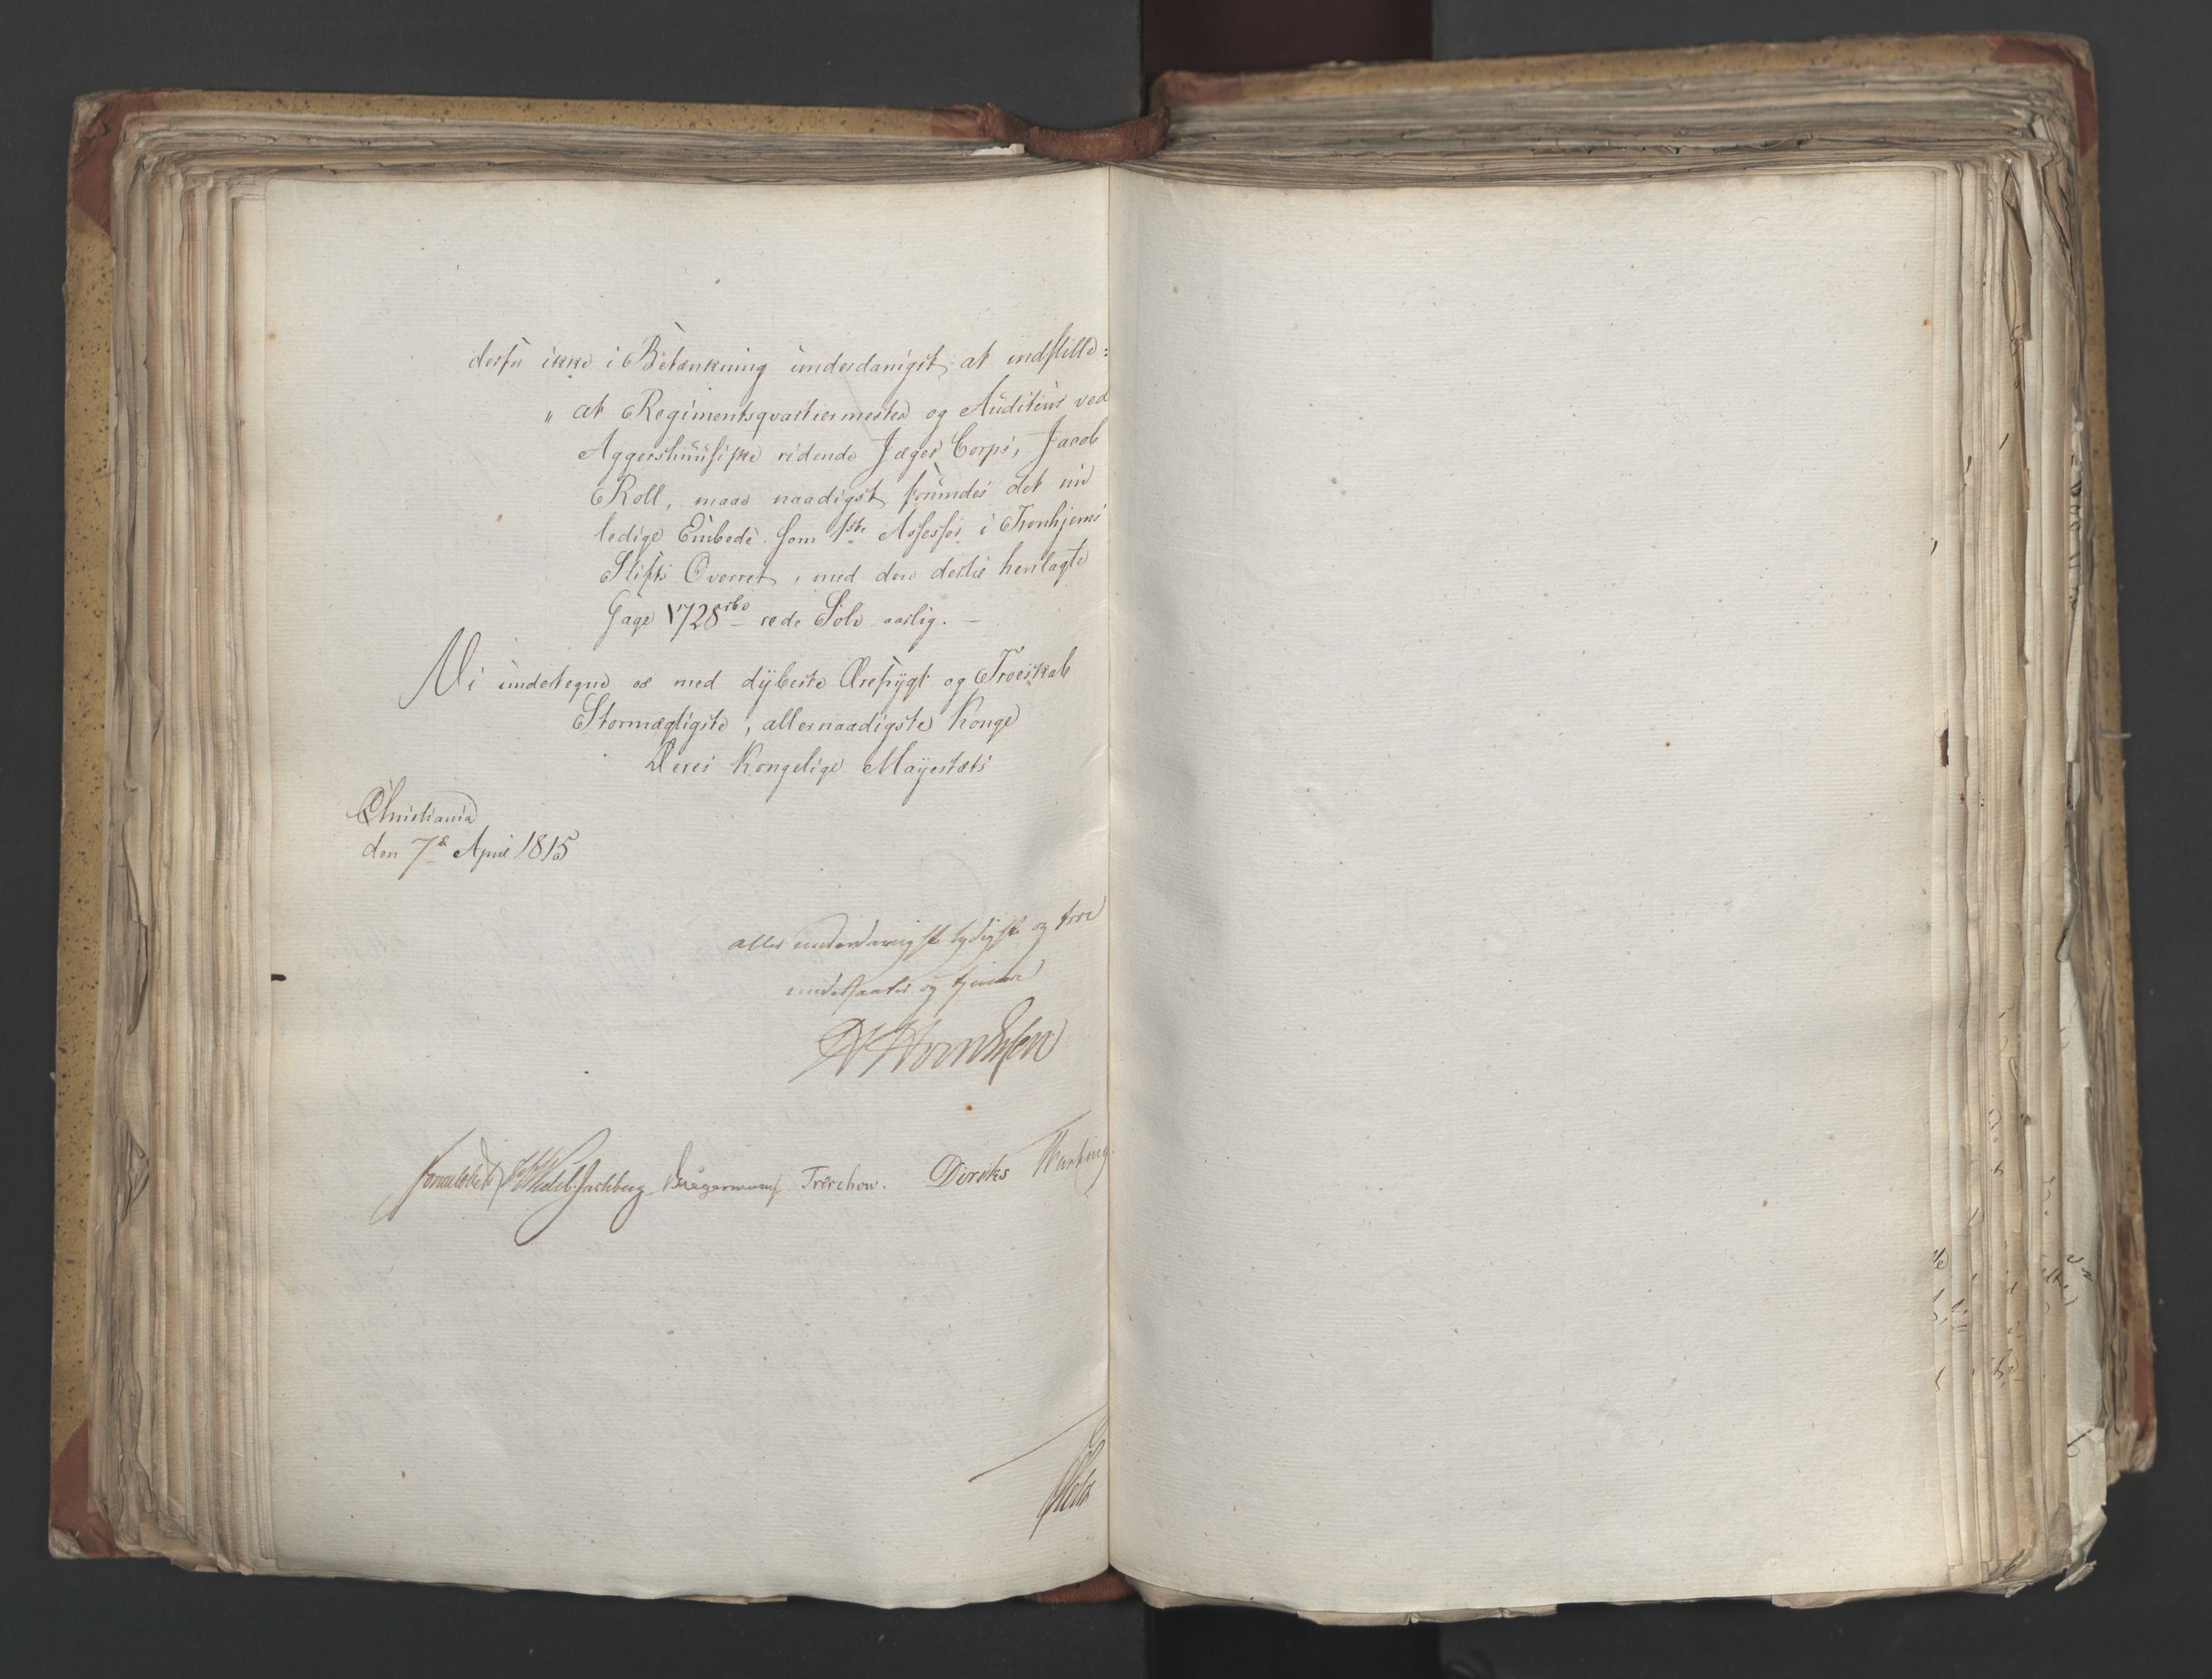 derfor ikke i Betænkning underdanigst at indstille:
„ at Regimentsqvarteermester og Auditeur ved
Aggershuusiske ridende Jæger Corps, Jacob
Roll, maae naadigst forundes det nu
ledige Embede som 1ste Assessor i Tronhjems
Stifts Overret, med den dertil henlagte
Gage 1728 rbd rede Sølv aarlig. —
Vi undertegne os med dybeste Ærefrygt og Troeskab
Stormægtigste, allernaadigste Konge
Deres Kongelige Mayestæts
Christiania
den 7de April 1815
allerunderdanigste lydigste og troe
undersaatter og tjenere
Sommerhielm Wedel Jarlsberg Treschow. Diriks